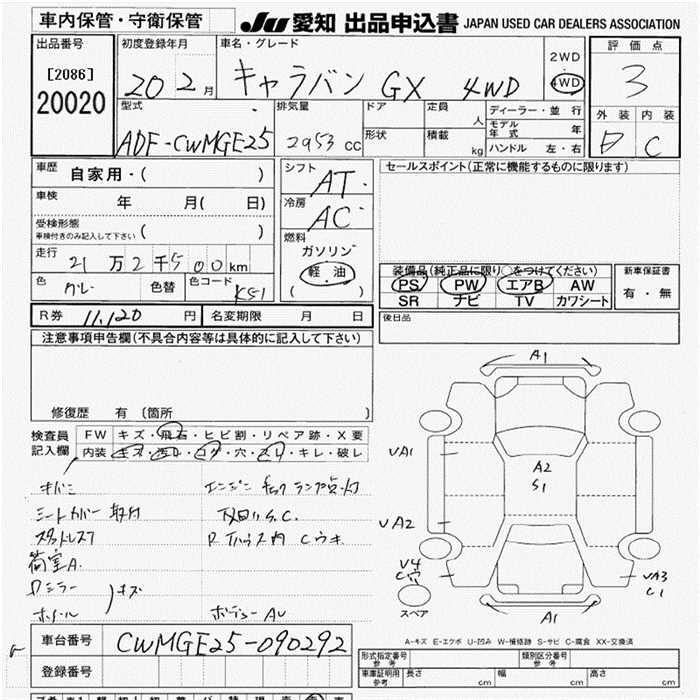 車内保管・守衛保管
JU 愛知 出品申込書 JAPAN USED CAR DEALERS ASSOCIATION
出品番号
[2086]
20020
初度登録年月
20 2 月
車名・グレード
キャラバン GX 4WD
2WD
4WD
評価点
3
外装 内装
C
型式
ADF-CWMGE25
排気量
2953 cc
ドア
形状
定員
人
積載
kg
ディーラー・並行
モデル年式 年
ハンドル 左・右
車歴
自家用・( )
車検
年 月( 日)
受検形態
車検付きのみ記入して下さい ( )
走行
21 万 2 千 5 0 0 km
色
グレー
色替
色コード
K51
シフト
AT
冷房
AC
燃料
ガソリン
軽油
( )
セールスポイント(正常に機能するものに限ります)
装備品(純正品に限り○をつけてください)
PS PW エアB AW
SR ナビ TV カワシート
新車保証書
有・無
R券 11,120 円
名変期限 月 日
後日品
注意事項申告欄(不具合内容等は具体的に記入して下さい)
修復歴 有 〔箇所 〕
検査員
記入欄
FW キズ・飛石・ヒビ割・リペア跡・X要
内装 キズ・汚レ・コゲ・穴・スレ・キレ・破レ
キバミ
エンジンチェックランプ点灯
シートカバー取付
スタッドレス7
荷室A
Rタイハウス内 Cウキ
Dミラー
キズ
ホイール
ボデューAU
A1
UA1
A2
S1
UA2
U4
Cウ
スペア
UA3
C1
A1
A-キズ E-エクボ U-凹み W-補修跡 S-サビ C-腐食 XX-交換済
車台番号
CWMGE25-090292
登録番号
形式指定番号
参考
類別区分番号
参考
車庫証明用
参考
長さ cm
幅 cm
高さ cm